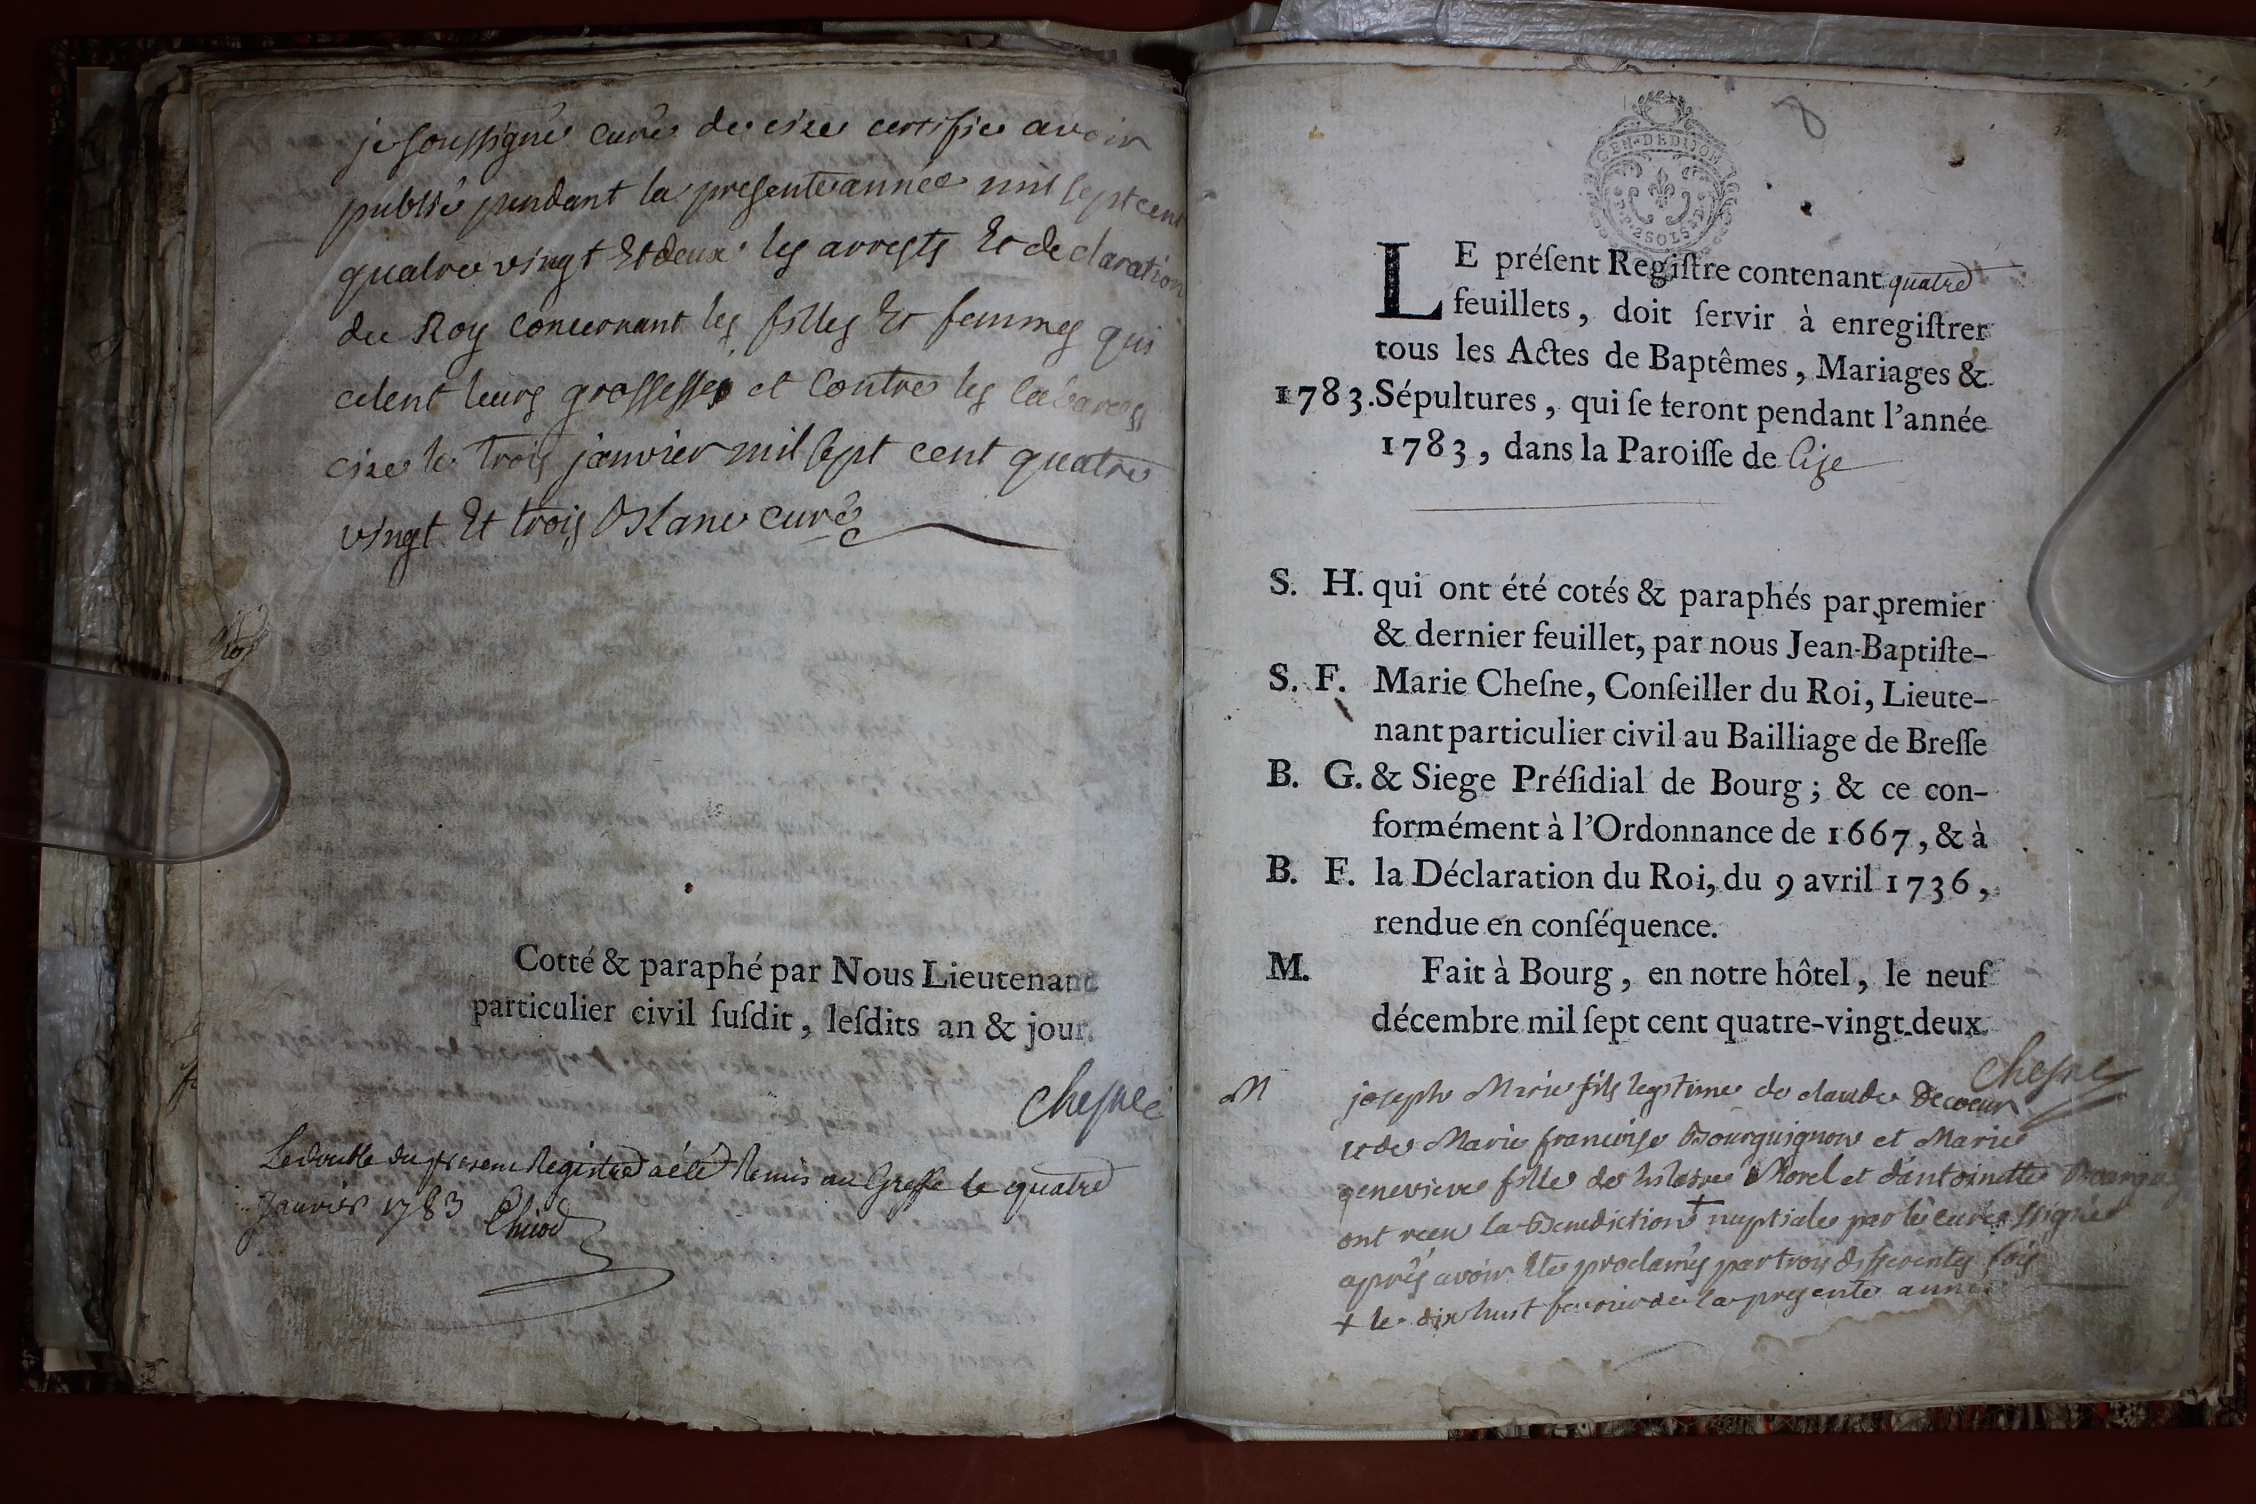 je soussigné curé de cize certifie avoir
publié pendant la presente année mil sept cent
quatre vingt Et deux les arrests Et declaration
du Roy concernant les filles Et femmes qui
celent leurs grossesses et contre les cabarets
cize le trois janvier mil sept cent quatre
vingt Et trois curé
Cotté & paraphé par Nous Lieutenant
particulier civil ſuſdit, leſdits an & jour.
Chesne
Le double du present Registre a été Remis au Greffe le quatre
Janvier 1783
8
GEN·DEDIJON
2SOLS
LE préſent Regiſtre contenant quatre
feuillets, doit ſervir à enregiſtrer
tous les Actes de Baptêmes, Mariages &
1783. Sépultures, qui ſe feront pendant l'année
1783, dans la Paroiſſe de Cize
S. H. qui ont été cotés & paraphés par premier
& dernier feuillet, par nous Jean-Baptiſte-
S. F. Marie Cheſne, Conſeiller du Roi, Lieute-
nant particulier civil au Bailliage de Breſſe
B. G. & Siege Préſidial de Bourg ; & ce con-
formément à l'Ordonnance de 1667, & à
B. F. la Déclaration du Roi, du 9 avril 1736,
rendue en conſéquence.
M. Fait à Bourg, en notre hôtel, le neuf
décembre mil ſept cent quatre-vingt-deux.
Chesne
M joseph Marie fils legitime de claude Decoeur
et de Marie francoise Bourguignon et Marie
genevieve fille de hilaire Morel et d'antoinette
ont recu la Benediction + nuptiale par le curé soussigné
aprés avoir Eté proclamés par trois differentes fois
+ le dix huit fevrier de la presente année